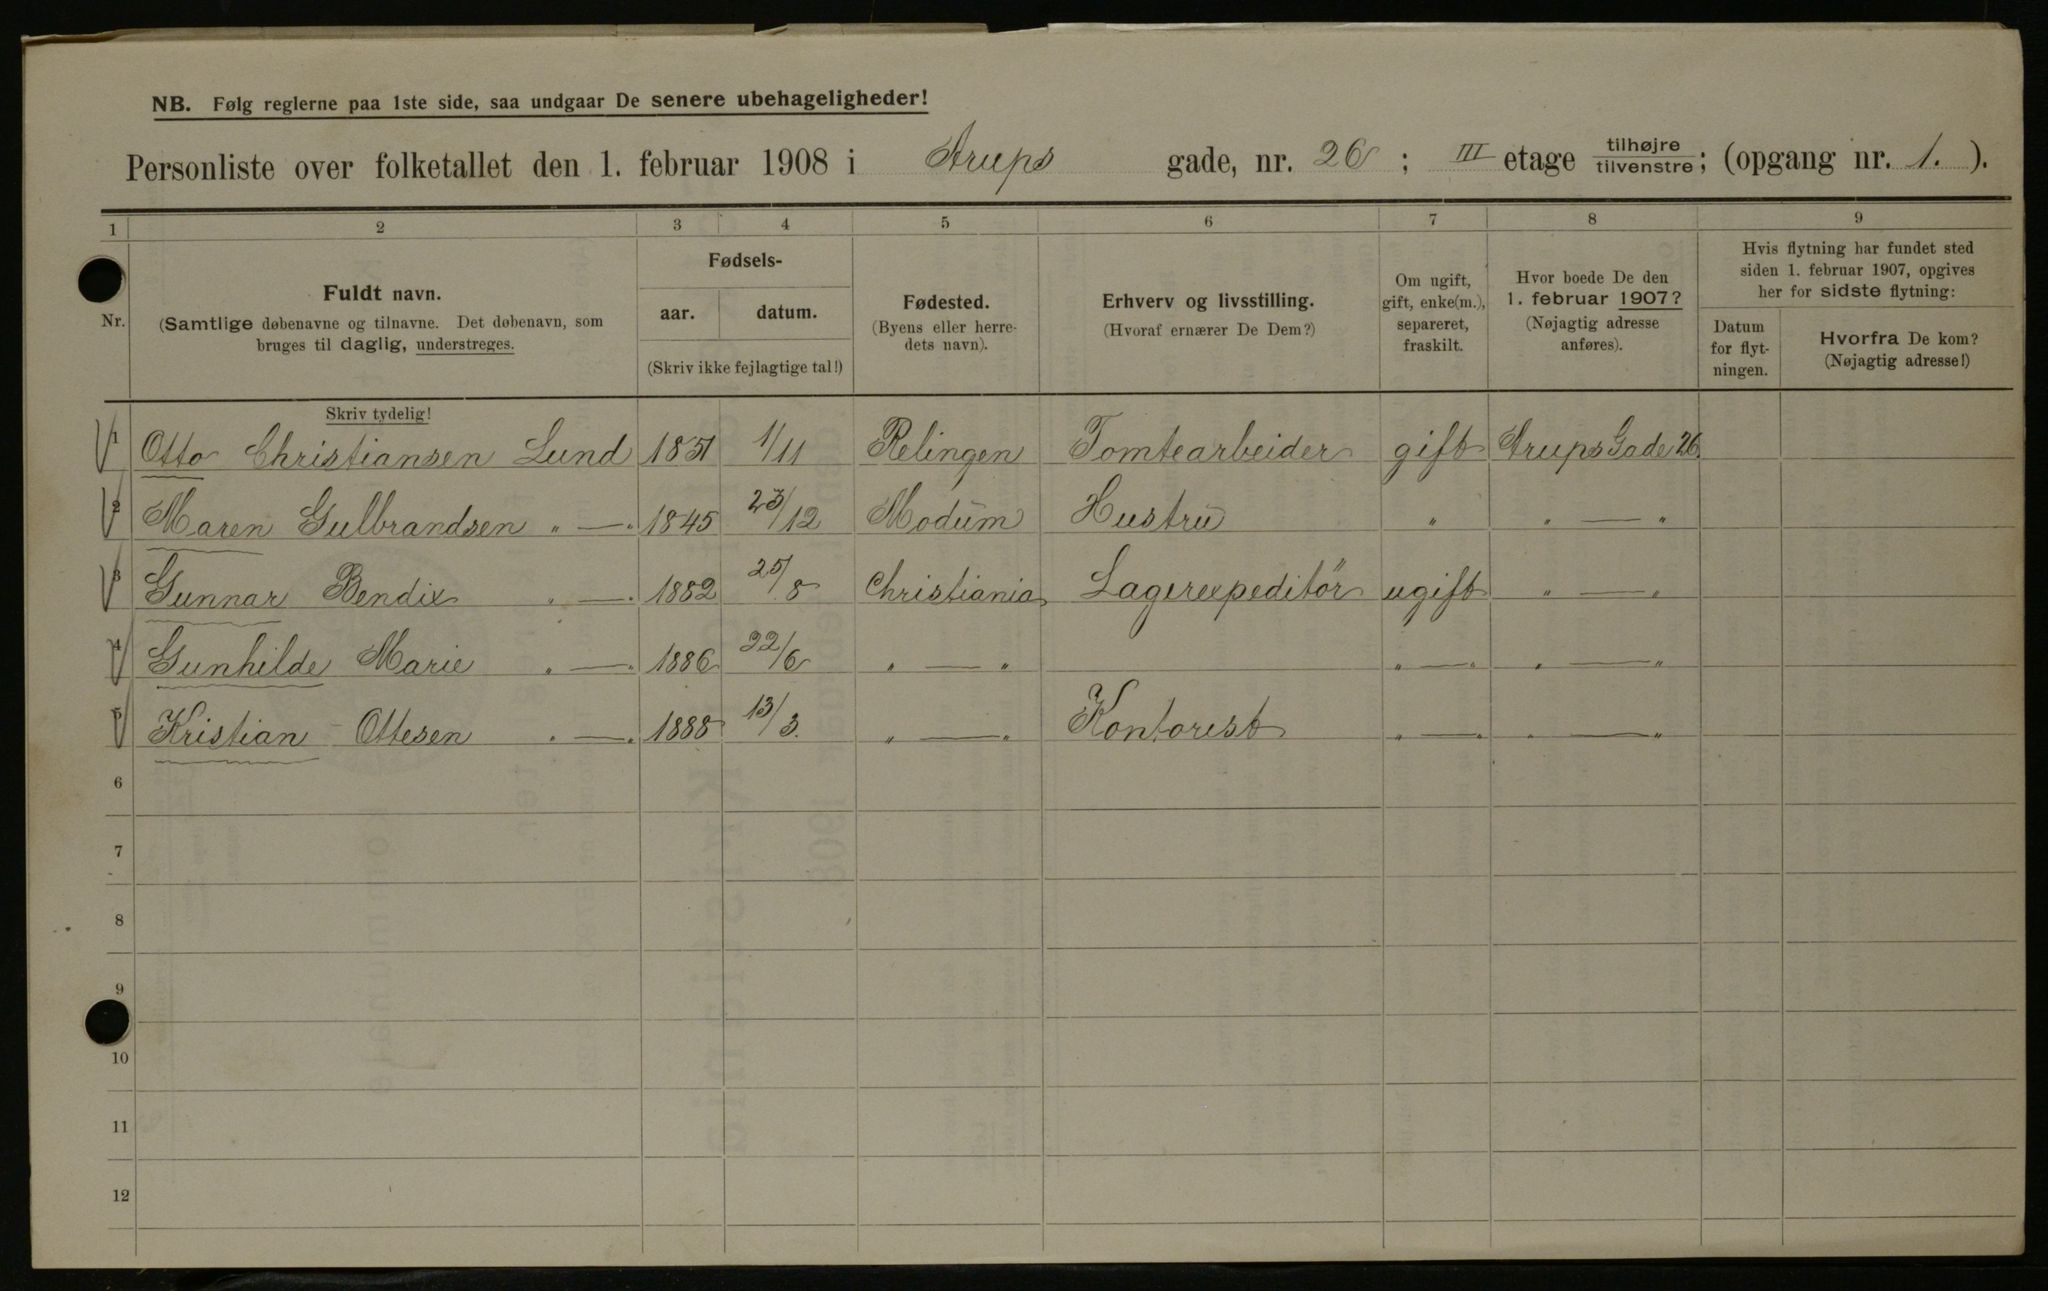 NB. Følg reglerne paa 1ste side, saa undgaar De senere ubehageligheder!
Personliste over folketallet den 1. februar 1908 i Arups gade, nr. 26 ; III etage tilhøjre tilvenstre ; (opgang nr. 1. ).
1 2 3 4 5 6 7 8 9
Nr. Fuldt navn. (Samtlige døbenavne og tilnavne. Det døbenavn, som bruges til daglig, understreges.
Fødsels- aar. datum. (Skriv ikke fejlagtige tal!)
Fødested. (Byens eller herredets navn).
Erhverv og livsstilling. (Hvoraf ernærer De Dem?)
Om ugift, gift, enke(m.), separeret, fraskilt.
Hvor boede De den 1. februar 1907? (Nøjagtig adresse anføres).
Hvis flytning har fundet sted siden 1. februar 1907, opgives her for sidste flytning:
Datum for flytningen.
Hvorfra De kom? (Nøjagtig adresse!)
Skriv tydelig!
1 Otto Christiansen Lund 1851 1/11 Relingen Tomtearbeider gift Arups Gade 26
2 Maren Gulbrandsen „ — „ 1845 23/12 Modum Hustru „ „ — „
3 Gunnar Bendix „ — „ 1882 25/8 Christiania Lagerexpeditör ugift „ — „
4 Gunhilde Marie „ — „ 1886 22/6 „ — „ „ — „ „ — „
5 Kristian Ottesen „ — „ 1888 13/3. „ — „ Kontorist „ — „ „ — „
6
7
8
9
10
11
12